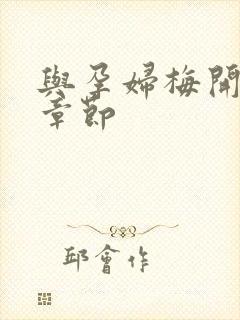 與孕婦梅開
章節
邱會作